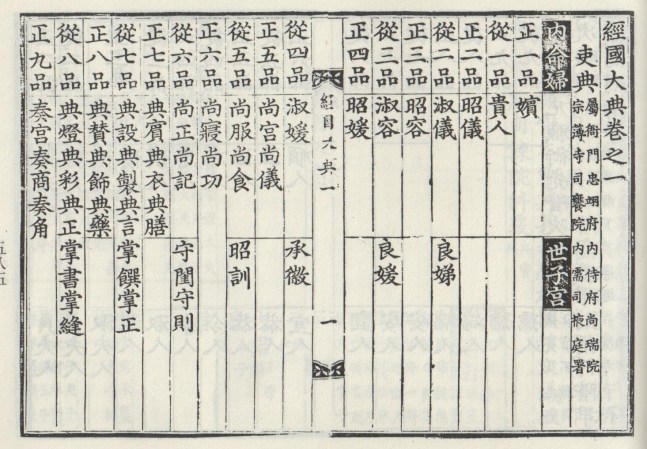 經國大典卷之一
吏典 屬衙門忠翊府內侍府尚瑞院
宗簿寺司饔院內需司掖庭署
內命婦 世子宮
正一品 嬪
從一品 貴人
正二品 昭儀
從二品 淑儀 良娣
正三品 昭容
從三品 淑容 良媛
正四品 昭媛
經國大典一 一
從四品 淑媛 承徽
正五品 尚宮尚儀
從五品 尚服尚食 昭訓
正六品 尚寢尚功
從六品 尚正尚記 守閨守則
正七品 典賓典衣典膳
從七品 典設典製典言 掌饌掌正
正八品 典贊典飾典藥
從八品 典燈典彩典正 掌書掌縫
正九品 奏宮奏商奏角